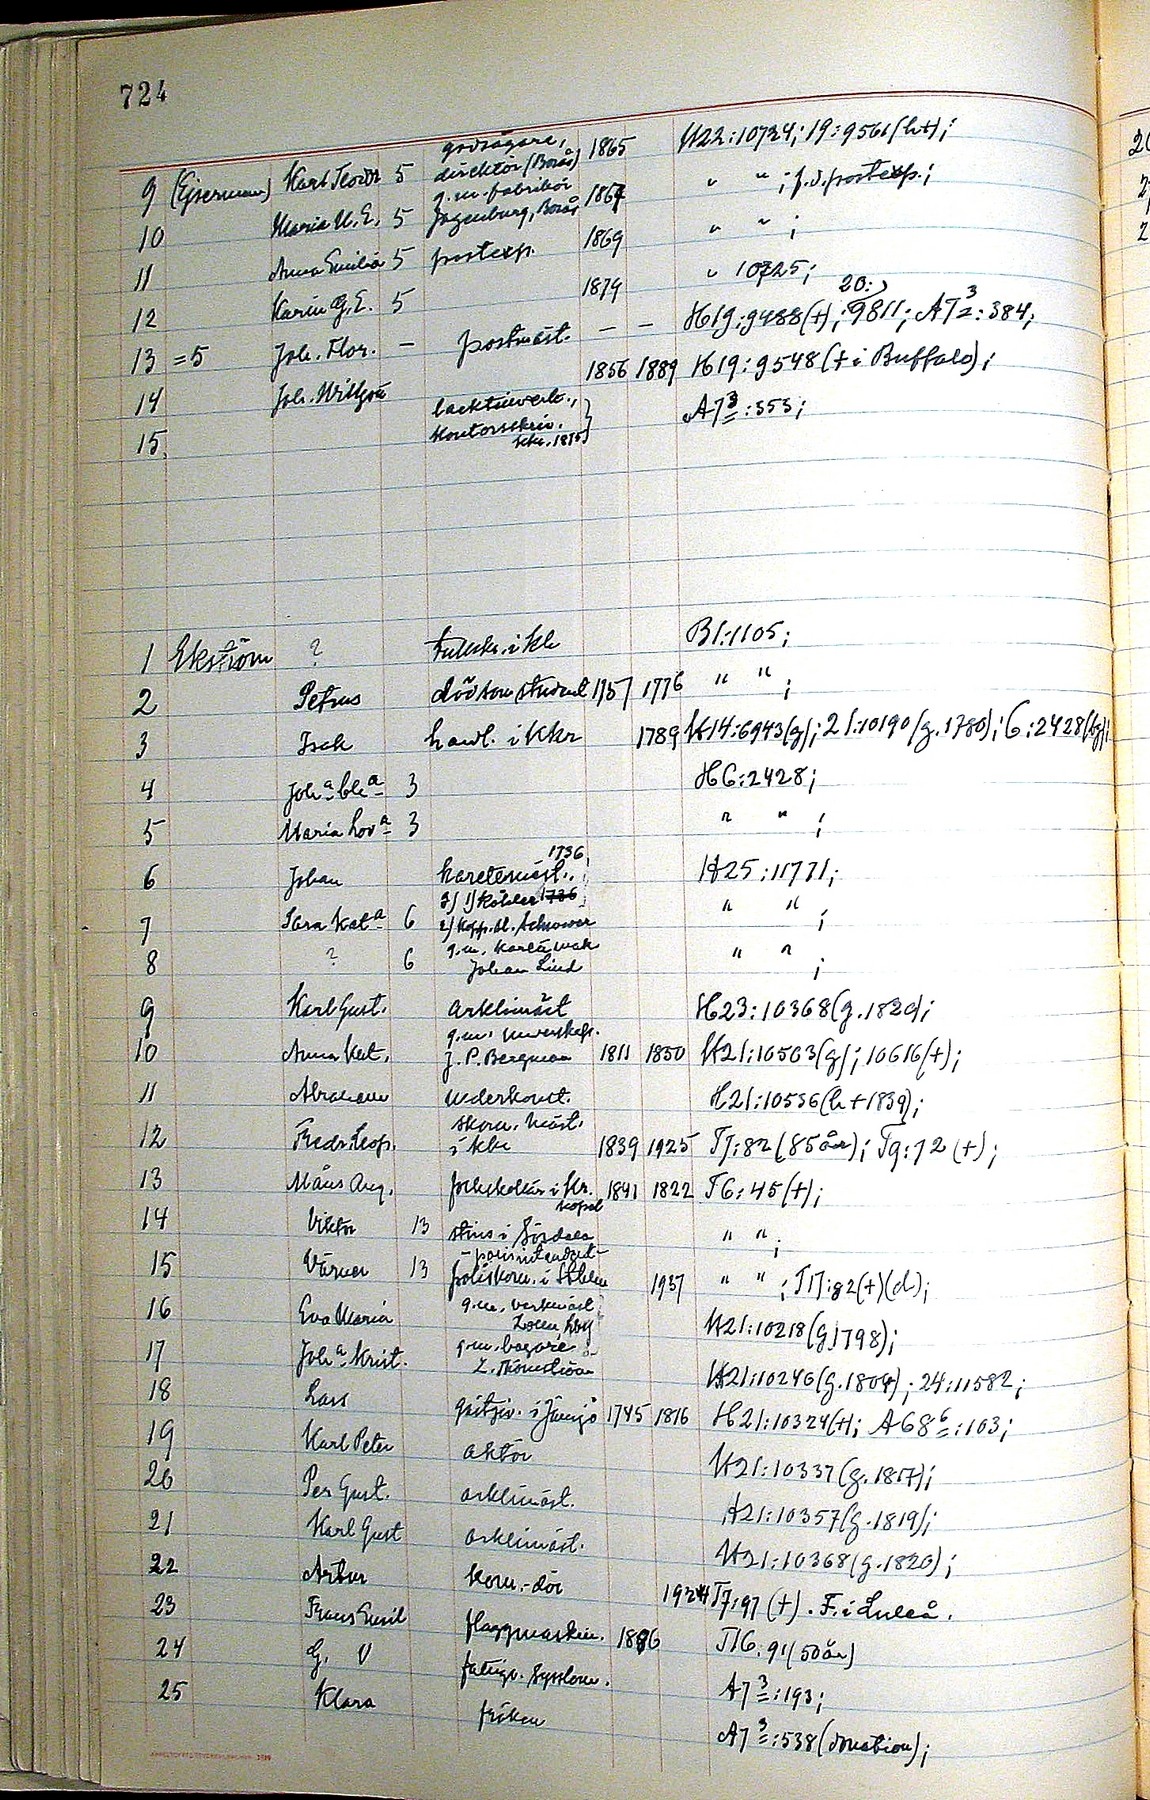 724
godsägare,
9 (Ejserman) Karl Teodor 5 direktör (Borås) 1865 H22:10724; 19:9561(h+);
g.m. fabrikör
10 Maria U.E. 5 Jagenburg, Borås 1867 " " ; f.d. postexp.;
11 Anna Emilia 5 postexp. 1869 " " ;
12 Karin G.E. 5 1879 " 10725;
20:
13 =5 Joh. Flor. — postmäst. — — H19:9488(+); 9811; A7 3/2:384;
14 Joh. Wilhelm 1856 1889 H19:9548(+ i Buffalo);
15. kontorsskriv. A7 3:353;
kkr. 1875
1 Ekström ? i kh B1:1105;
2 Petrus död som student 1757 1776 " " ;
3 Isak handl. i Kkr 1789 H14:6943(g); 21:10190(g.1780); 6:2428(g);
4 Joha 3 H6:2428;
5 Maria Lova 3 " " ;
1736
6 Johan H25:11771;
1) Köhler 1736
7 Sara Kata 6 2) " " ;
g.m.
8 ? 6 Johan Lind " " ;
9 Karl Gust. arklimäst H23:10368(g.1820);
g.m.
10 Anna Kat. J.P. Bergman 1811 1850 H21:10503(g); 10616(+);
11 Abraham underkonst. H21:10536(h+1839);
skom. mäst.
12 Fredr. Leop. i kkr 1839 1925 T7:82 (85 år); T9:72 (+);
13 Måns Aug. i kr. 1841 1822 T6:45(+);
kapel
14 Viktor 13 stins i Sösdala " " ;
15 Värner 13 poliskom. i Sthlm 1937 " " ; T17:82(+)(d);
g.m. verkmäst
16 Eva Maria H21:10218(g1798);
g.m. bagare
17 Joha Krist. H21:10246(g.1804); 24:11582;
18 Lars gästgiv. i Jämjö 1745 1816 H21:10324(+; A68 6:103;
19 Karl Peter aktör H21:10337(g.1817);
20 Per Gust. arklimäst. H21:10357(g.1819);
21 Karl Gust arklimäst. H21:10368(g.1820);
22 Artur kom.-dör 1924 T7:97 (+). F. i Luleå.
23 Frans Emil flaggmaskin. 1886 T16:91(50 år)
24 G. V fattigv. sysslom. A7 3:193;
25 Klara fröken A7 3:538 (donation);